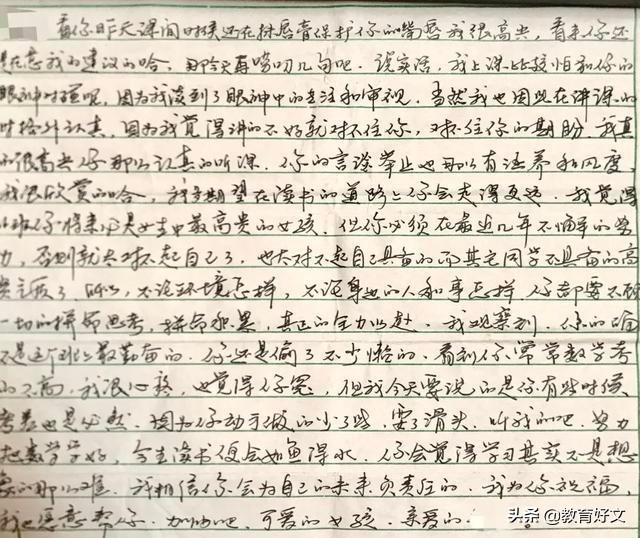 看你昨天课间时候还在抹唇膏保护你的嘴唇我很高兴，看来你还
是在意我的建议的哈、那今天再唠叨几句吧。说实话，我上课比较怕和你的
眼神对碰呢，因为我读到了眼神中的专注和审视。当然我也因此在讲课的
时格外认真，因为我觉得讲的不好就对不住你，对不住你的期盼，我真
的很高兴你那么认真的听课。你的言谈举止也那么有涵养和风度，
我很欣赏的哈，我多期望在读书的道路上你会走得更远．我觉得
你将来必是女生中最高贵的女孩．但你必须在最近几年不懈的努
力，否则就太对不起自己了，也太对不起自己具备的而其它同学不具备的高
贵了 所以，不论环境怎样，不论身边的人和事怎样 你都要不顾
一切的拼命思考，拼命积累，真正的全力以赴．我观察到．你
不是这个班上最勤奋的．你还是偷了不少懒的．看到你常常数学考
的不高，我很心疼，也觉得你冤，但我今天要说的是你有些时候，
考差也是必然．因为你动手做的少了些，耍了滑头．听我的吧，努力
把数学学好，今生读书便会如鱼得水．你会觉得学习其实不是想
象的那么难．我相信你会为自己的未来负责任的．我为你祝福，
我也愿意帮你．加油吧，可爱的女孩．亲爱的．
头条 @教育好文